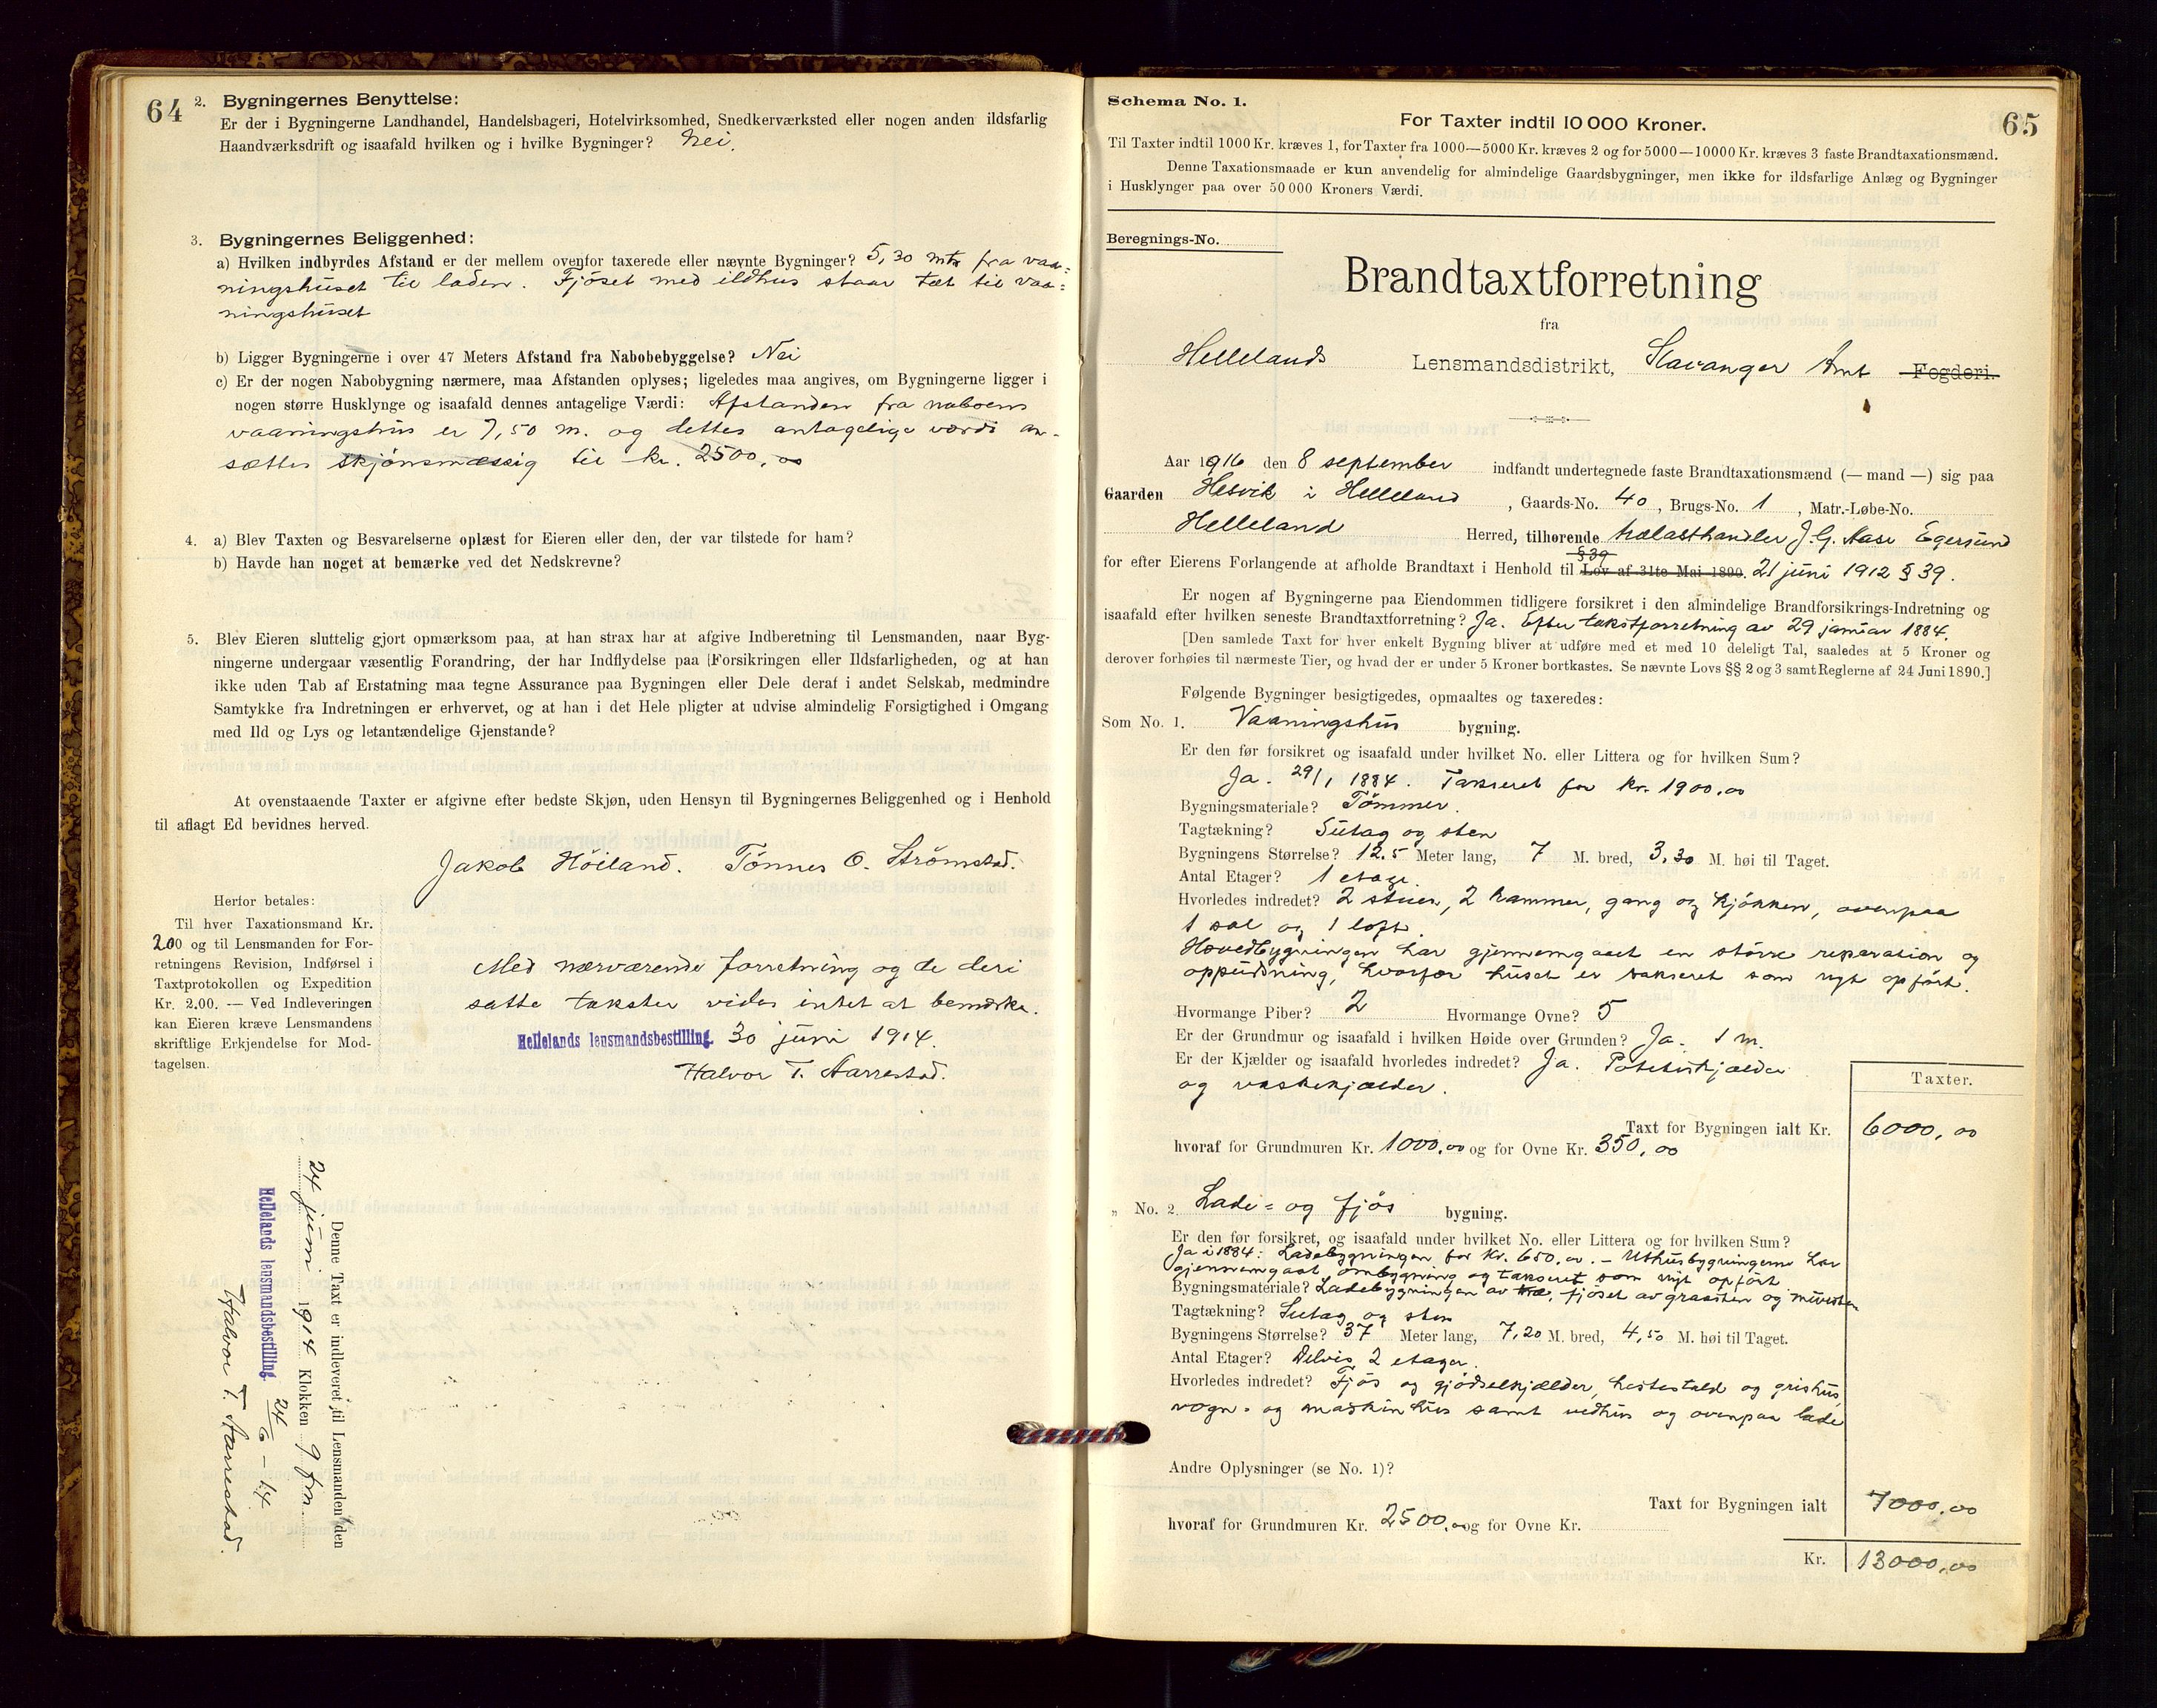 64
2. Bygningernes Benyttelse:
Er der i Bygningerne Landhandel, Handelsbageri, Hotelvirksomhed, Snedkerværksted eller nogen anden ildsfarlig
Haandværksdrift og isaafald hvilken og i hvilke Bygninger? Nei.
3. Bygningernes Beliggenhed:
a) Hvilken indbyrdes Afstand er der mellem ovenfor taxerede eller nævnte Bygninger? 5,30 mtr fra vaa=
ningshuset til laden. Fjöset med ildhus staar tæt til vaa=
ningshuset
b) Ligger Bygningerne i over 47 Meters Afstand fra Nabobebyggelse? Nei
c) Er der nogen Nabobygning nærmere, maa Afstanden oplyses; ligeledes maa angives, om Bygningerne ligger i
nogen større Husklynge og isaafald dennes antagelige Værdi: Afstanden fra naboens
vaaningshus er 7,50 m. og dettes antagelige værdi an-
sættes skjönsmæssig til kr. 2500,00
4. a) Blev Taxten og Besvarelserne oplæst for Eieren eller den, der var tilstede for ham?
b) Havde han noget at bemærke ved det Nedskrevne?
5. Blev Eieren sluttelig gjort opmærksom paa, at han strax har at afgive Indberetning til Lensmanden, naar Byg-
ningerne undergaar væsentlig Forandring, der har Indflydelse paa Forsikringen eller Ildsfarligheden, og at han
ikke uden Tab af Erstatning maa tegne Assurance paa Bygningen eller Dele deraf i andet Selskab, medmindre
Samtykke fra Indretningen er erhvervet, og at han i det Hele pligter at udvise almindelig Forsigtighed i Omgang
med Ild og Lys og letantændelige Gjenstande?
At ovenstaaende Taxter er afgivne efter bedste Skjøn, uden Hensyn til Bygningernes Beliggenhed og i Henhold
til aflagt Ed bevidnes herved.
Jakob Höiland. Tönnes O. Strömstad.
Herfor betales:
Til hver Taxationsmand Kr.
2.00 og til Lensmanden for For-
retningens Revision, Indførsel i
Taxtprotokollen og Expedition
Kr. 2.00. — Ved Indleveringen
kan Eieren kræve Lensmandens
skriftlige Erkjendelse for Mod-
tagelsen.
Med nærværende forretning og de deri
satte takster vides intet at bemærke.
Hellelands lensmandsbestilling. 30 juni 1914.
Halvor T. Aarrestad.
Denne Taxt er indleveret til Lensmanden den
24 juni 1914 Klokken 9 fm.
Hellelands lensmandsbestilling. 24/6 - 14
Halvor T. Aarrestad.
Schema No. 1.
65
For Taxter indtil 10 000 Kroner.
Til Taxter indtil 1000 Kr. kræves 1, for Taxter fra 1000—5000 Kr. kræves 2 og for 5000—10000 Kr. kræves 3 faste Brandtaxationsmænd.
Denne Taxationsmaade er kun anvendelig for almindelige Gaardsbygninger, men ikke for ildsfarlige Anlæg og Bygninger
i Husklynger paa over 50 000 Kroners Værdi.
Beregnings-No.
Brandtaxtforretning
fra
Hellelands Lensmandsdistrikt, Stavanger Amt Fogderi.
Aar 1916 den 8 september indfandt undertegnede faste Brandtaxationsmænd (— mand —) sig paa
Gaarden Hesvik i Helleland, Gaards-No. 40, Brugs-No. 1, Matr.-Løbe-No.
Helleland Herred, tilhørende trælasthandler J. G. Aase Egersund
§ 39
for efter Eierens Forlangende at afholde Brandtaxt i Henhold til Lov af 31te Mai 1890. 21 juni 1912 § 39.
Er nogen af Bygningerne paa Eiendommen tidligere forsikret i den almindelige Brandforsikrings-Indretning og
isaafald efter hvilken seneste Brandtaxtforretning? Ja. Efter takstforretning av 29 januar 1884.
[Den samlede Taxt for hver enkelt Bygning bliver at udføre med et med 10 deleligt Tal, saaledes at 5 Kroner og
derover forhøies til nærmeste Tier, og hvad der er under 5 Kroner bortkastes. Se nævnte Lovs §§ 2 og 3 samt Reglerne af 24 Juni 1890.]
Følgende Bygninger besigtigedes, opmaaltes og taxeredes:
Som No. 1. Vaaningshus bygning.
Er den før forsikret og isaafald under hvilket No. eller Littera og for hvilken Sum?
Ja. 29/1 1884. Takseret for kr. 1900.00
Bygningsmateriale? Tömmer.
Tagtækning? Sutag og sten
Bygningens Størrelse? 12.5 Meter lang, 7 M. bred, 3,30 M. høi til Taget.
Antal Etager? 1 etage.
Hvorledes indredet? 2 stuer, 2 kammer, gang og kjökken, ovenpaa
1 sal og 1 loft.
Hovedbygningen har gjennemgaaet en större reparation og
oppudsning, hvorfor huset er takseret som nyt opfört.
Hvormange Piber? 2 Hvormange Ovne? 5
Er der Grundmur og isaafald i hvilken Høide over Grunden? Ja. 1 m.
Er der Kjælder og isaafald hvorledes indredet? Ja. Potetkjælder
og vaskekjælder.
Taxter.
Taxt for Bygningen ialt Kr. 6000,00
hvoraf for Grundmuren Kr. 1000,00 og for Ovne Kr. 350,00
" No. 2. Lade= og fjös bygning.
Er den før forsikret, og isaafald under hvilket No. eller Littera og for hvilken Sum?
Ja i 1884: Ladebygningen for kr. 650.00. - Uthusbygningerne har
gjennemgaat ombygning og takseret som nyt opfört
Bygningsmateriale? Ladebygningen av træ, fjöset av graasten og mursten
Tagtækning? Sutag og sten
Bygningens Størrelse? 37 Meter lang, 7,20 M. bred, 4,50 M. høi til Taget.
Antal Etager? Delvis 2 etager.
Hvorledes indredet? Fjös og gjödselkjælder, hestestald og grishus,
vogn= og maskinhus samt vedhus og ovenpaa lade
Andre Oplysninger (se No. 1)?
Taxt for Bygningen ialt 7000,00
hvoraf for Grundmuren Kr. 2500,00 og for Ovne Kr.
Kr. 13000,00